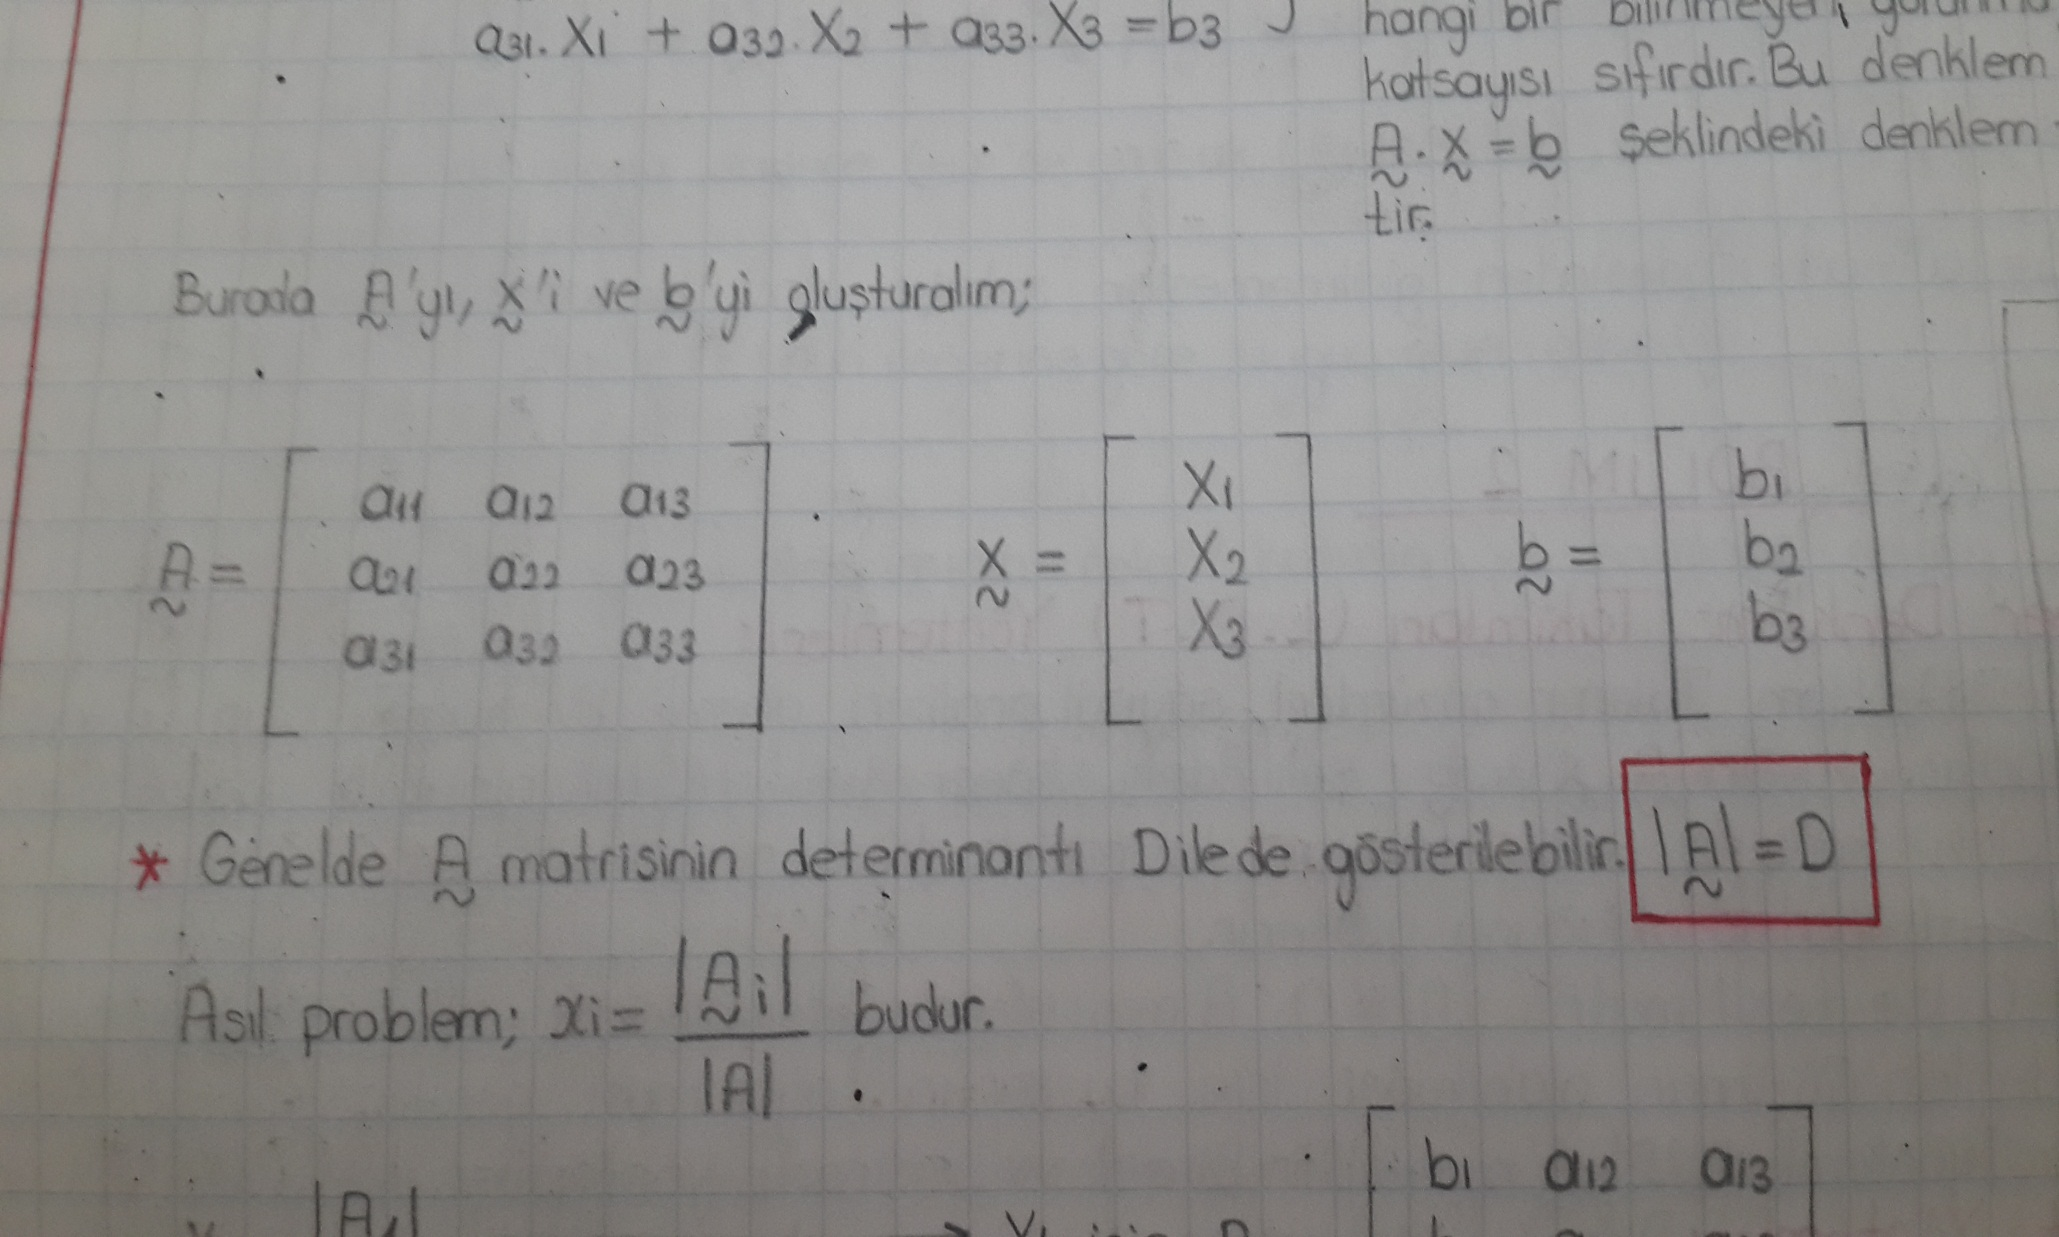 a31.x1 + a32.x2 + a33.x3 = b3
hangi bir
katsayısı sıfırdır. Bu denklem
A.x = b şeklindeki denklem
tir.
Burada A'yı, x'i ve b'yi oluşturalım;
A = [ a11 a12 a13
a21 a22 a23
a31 a32 a33 ]
x = [ x1
x2
x3 ]
b = [ b1
b2
b3 ]
* Genelde A matrisinin determinantı D ile de gösterilebilir. |A| = D
Asıl problem; xi = |Ai| / |A| budur.
b1 a12 a13